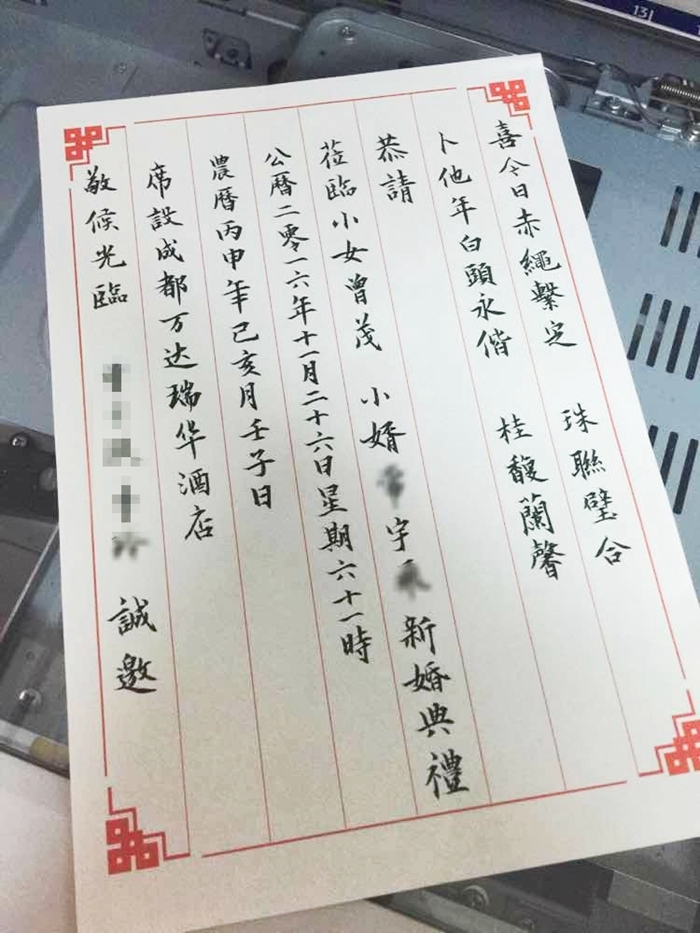 喜今日赤繩繫定 珠聯璧合
卜他年白頭永偕 桂馥蘭馨
恭請
蒞臨小女曾茂 小婿 宇 新婚典禮
公曆二零一六年十一月二十六日星期六十一時
農曆丙申年己亥月壬子日
席設成都万达瑞华酒店
敬候光臨 誠邀
13